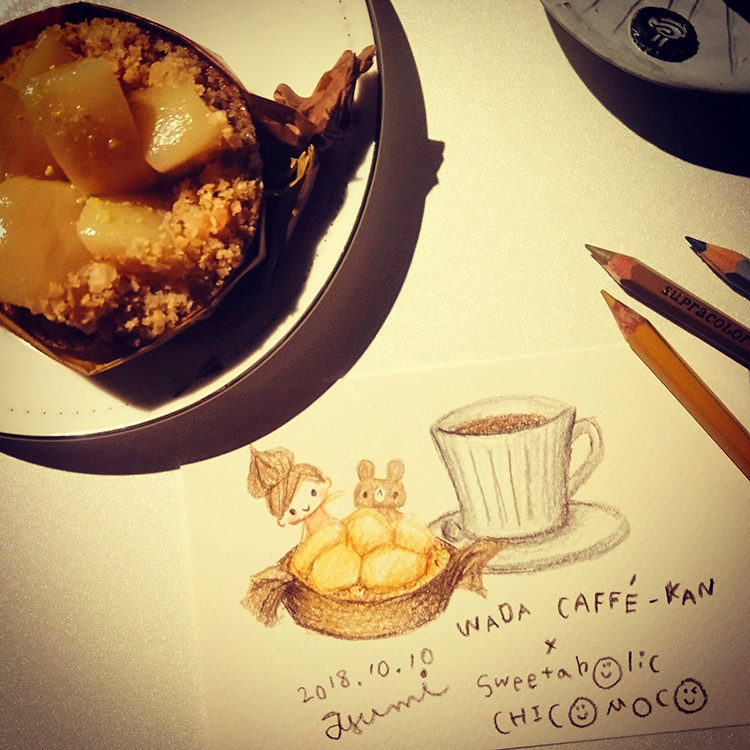 supracolor
WADA CAFFÉ-KAN
x
2018.10.10
Sweetaholic
CHICOMOCO